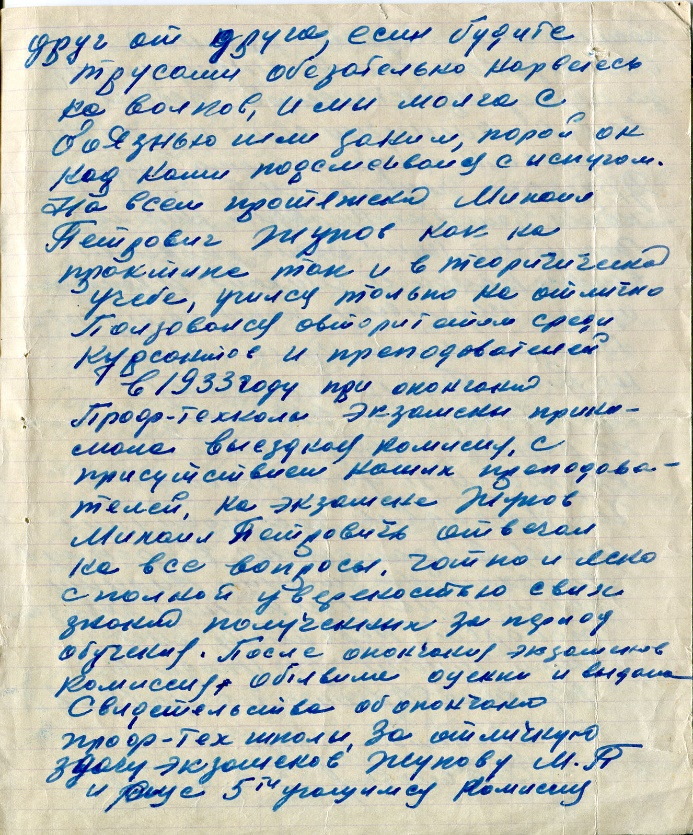 друг от друга, если будите
трусами обезательно нарветесь
на волков, и ми молча с
боязнью шли заним, порой он
над нами подсмеивался с испугом.
На всем протяжений Михаил
Петрович Жуков как на
практике так и в теоритической
учебе, учился только на отлично
Ползовался овторитетом среди
Курсантов и преподователей
в 1933 году при окончаний
Проф-техколы экзамены прини-
мала выездная комисия, с
присутствием наших преподова-
телей, на экзамене Жуков
Михаил Петровичь отвечал
на все вопросы, чотно и ясно
с полной увереностью своих
знаний полученных за период
обучения. После окончания экзаменов
комиссия, обявила оценки и выдала
Свидетельства об окончаний
проф-тех школы, За отличную
здачу экзаменов Жукову М.П
и еще 5ти учащимся Комиссия